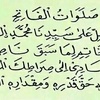 صَلَوَاتُ الْفَاتِحِ
لِّ عَلَى سَيِّدِنَا مُحَمَّدٍ
لِمَا سَبَقَ
إِلَى صِرَاطِكَ
حَقَّ قَدْرِهِ وَمِقْدَارِهِ